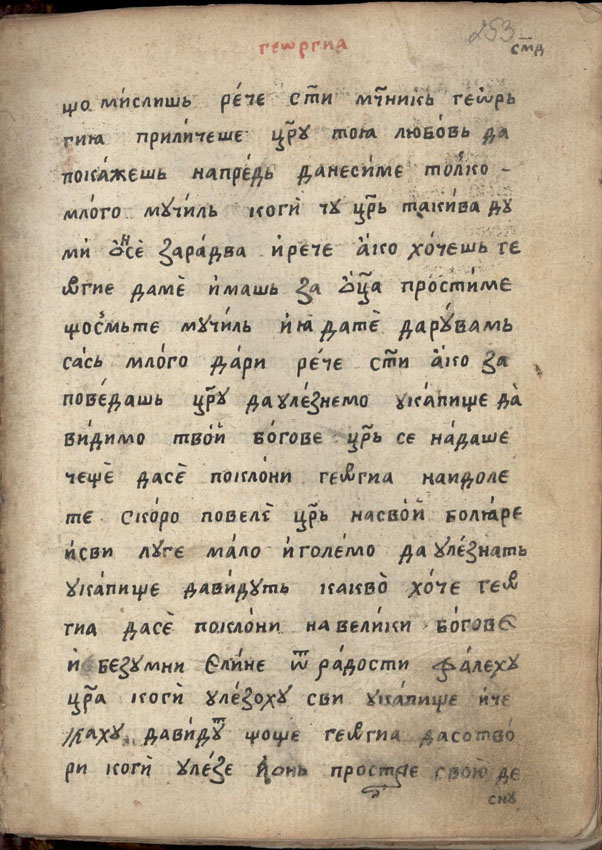 253
геѡргиа
смд
що мислишь рече ст҃и мч҃никь геѡрь
гию приличеше цр҃у тою любовь да
покажешь напредь данесиме толко
много мучиль когӣ чу цр҃ь такива ду
мӣ ѻ҆нсѐ зарадва ирече ако хочешь ге
ѡгие дамѐ имашь за ѻц҃а простиме
щосмьте мучиль ию датѐ дарувамь
сась млого дари рече ст҃и ако за
поведашь цр҃у да улезнемо укапище да
видимо твой богове цр҃ь се надаше
чещѐ дасѐ поклони геѡгиа наидоле
те скоро повелѐ цр҃ь насвой болꙗре
исви луге мало иголемо да улезнать
укапище давидуть каквò хоче геѡ
гиа дасѐ поклони на велики богове
и безумни єлине ѿ радости фалеху
цр҃а когӣ улезоху сви укапище ище
каху давидуᵀ щоще геѡгиа дасотво
ри когӣ улезе ѻнь простре свою де
сну